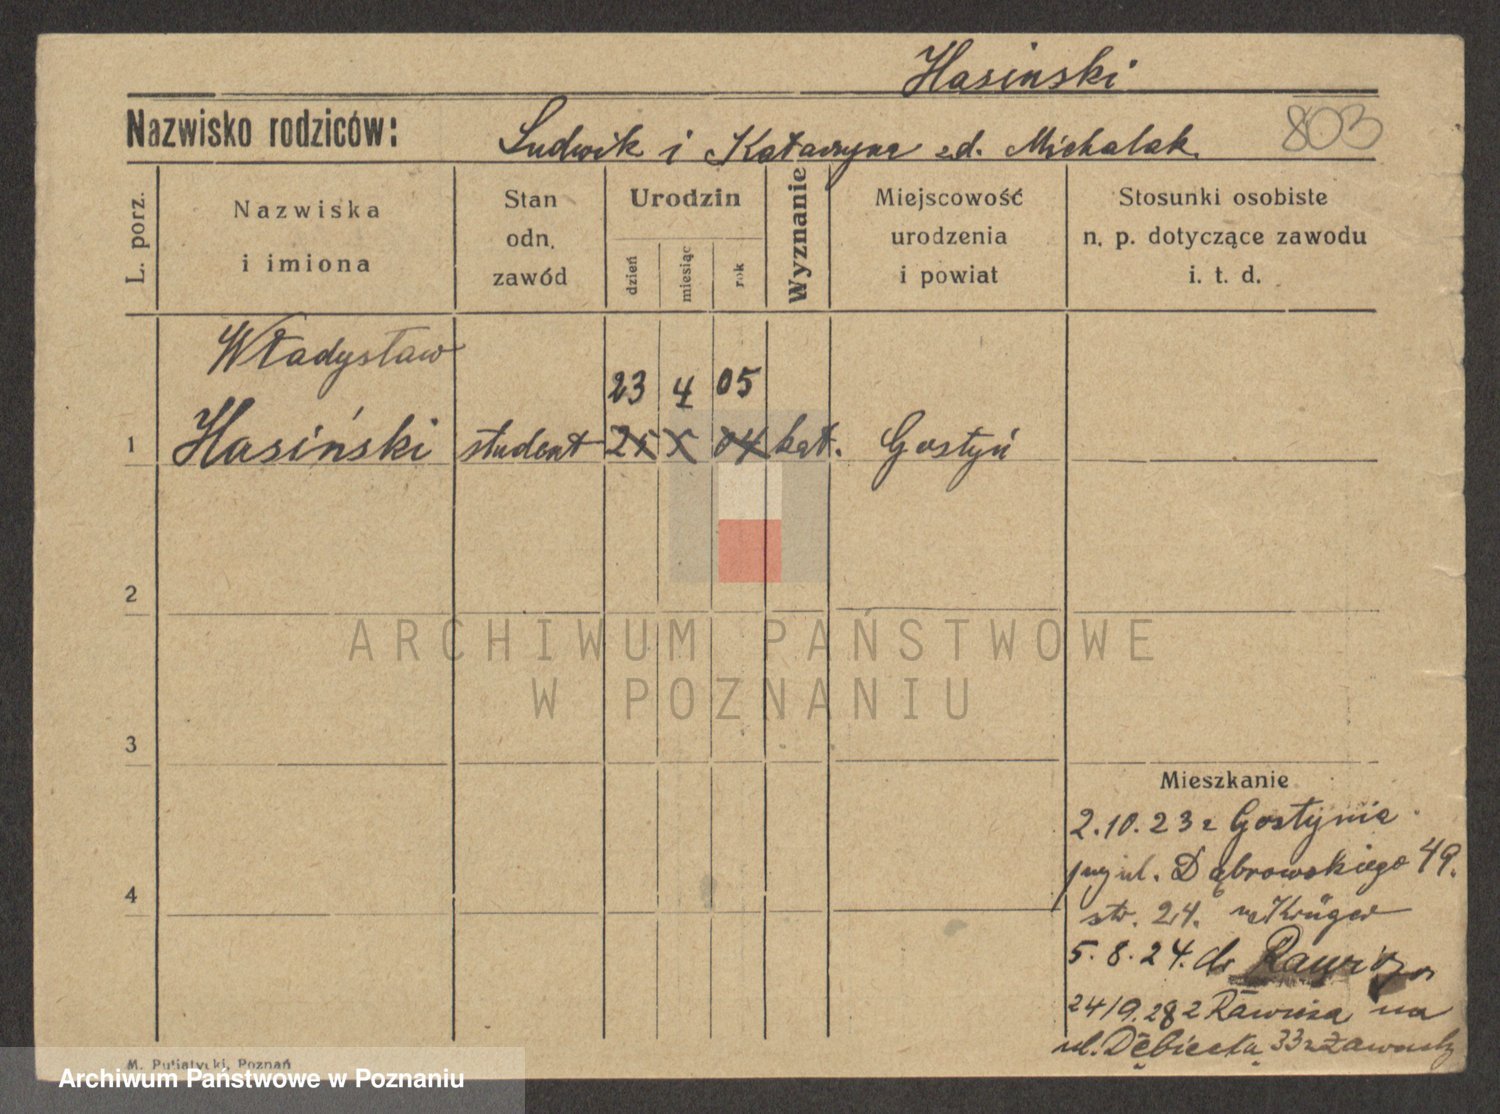 Hasinski
Nazwisko rodziców: Ludwik i Katarzyna zd. Michalak.
803
L. porz.
Nazwiska
i imiona
Stan
odn.
zawód
Urodzin
dzień
miesiąc
rok
Wyznanie
Miejscowość
urodzenia
i powiat
Stosunki osobiste
n. p. dotyczące zawodu
i. t. d.
Władysław
23 4 05
1 Hasiński student 25 X 04 kat. Gostyń
2
ARCHIWUM PAŃSTWOWE
W POZNANIU
3
Mieszkanie
2.10.23 z Gostynia
ul. Dąbrowskiego 49.
4
str. 24. Krüger
5.8.24. do
24/9.28 z Rawicza na
ul. Dębiecką 33
M. Putiatycki, Poznań
Archiwum Państwowe w Poznaniu